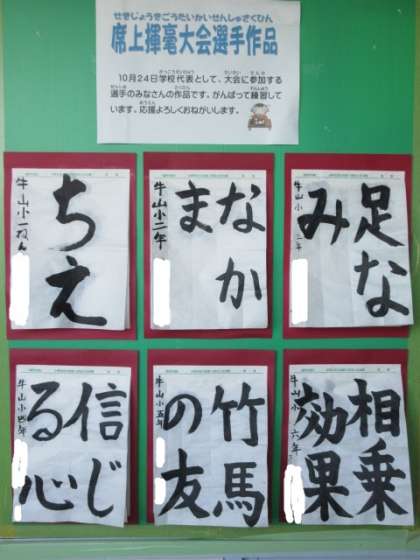 せきじょうきごうたいかいせんしゅさくひん
席上揮毫大会選手作品
10月24日学校代表として、大会に参加する
選手のみなさんの作品です。がんばって練習して
います。応援よろしくおねがいします。
ちえ
牛山小一ねん
なか
ま
牛山小二年
足な
み
牛山小三年
信じ
る心
牛山小四年
竹馬
の友
牛山小五年
相乗
効果
牛山小六年